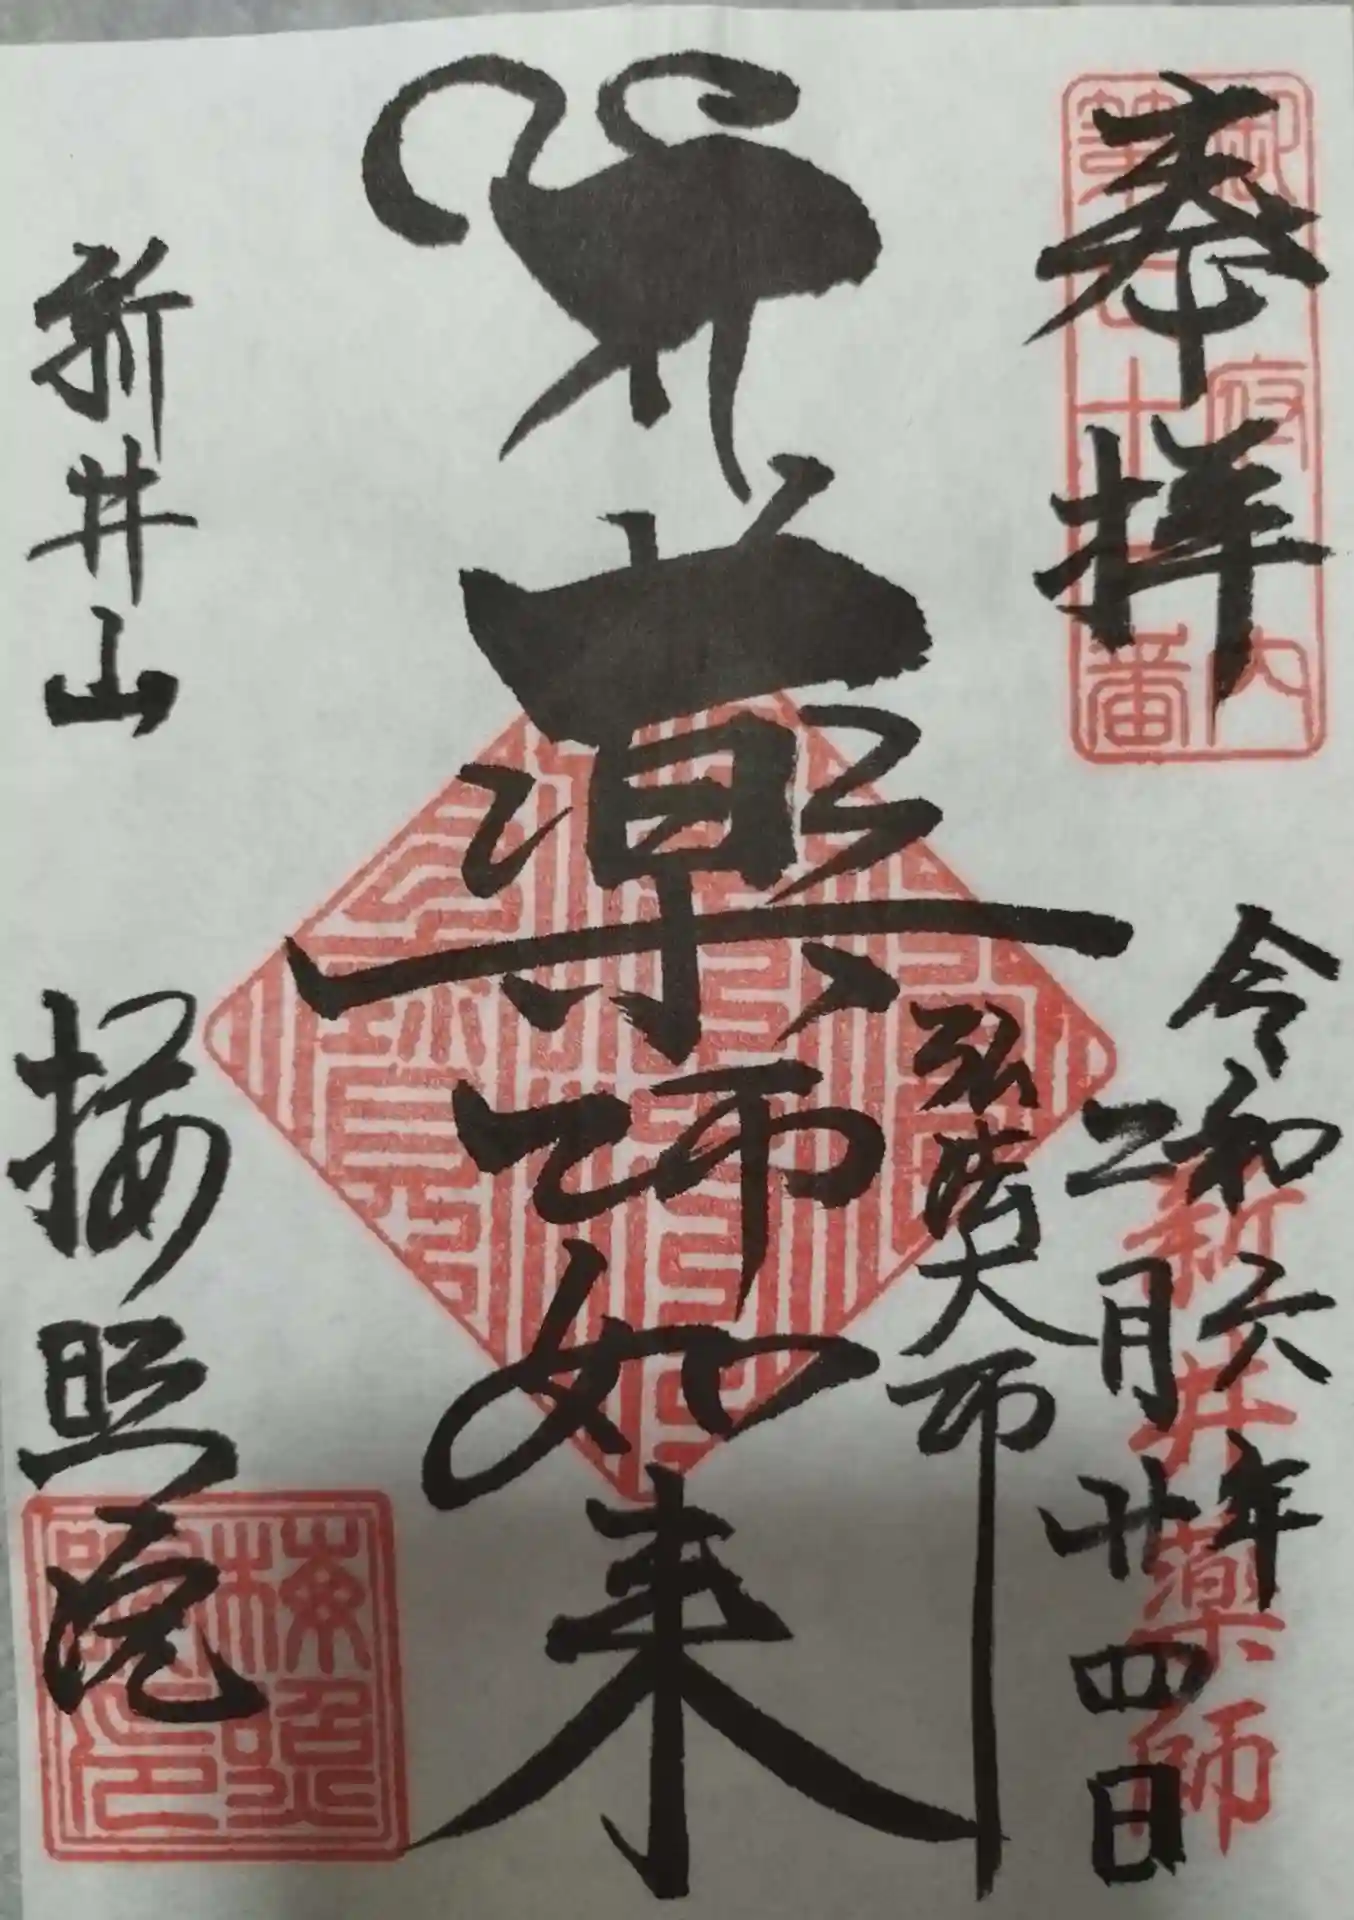 奉拝
御府内
第七十一番
令和六年
二月廿四日
新井薬師
弘法大師
薬師如来
新井山
梅照院
梅照院印